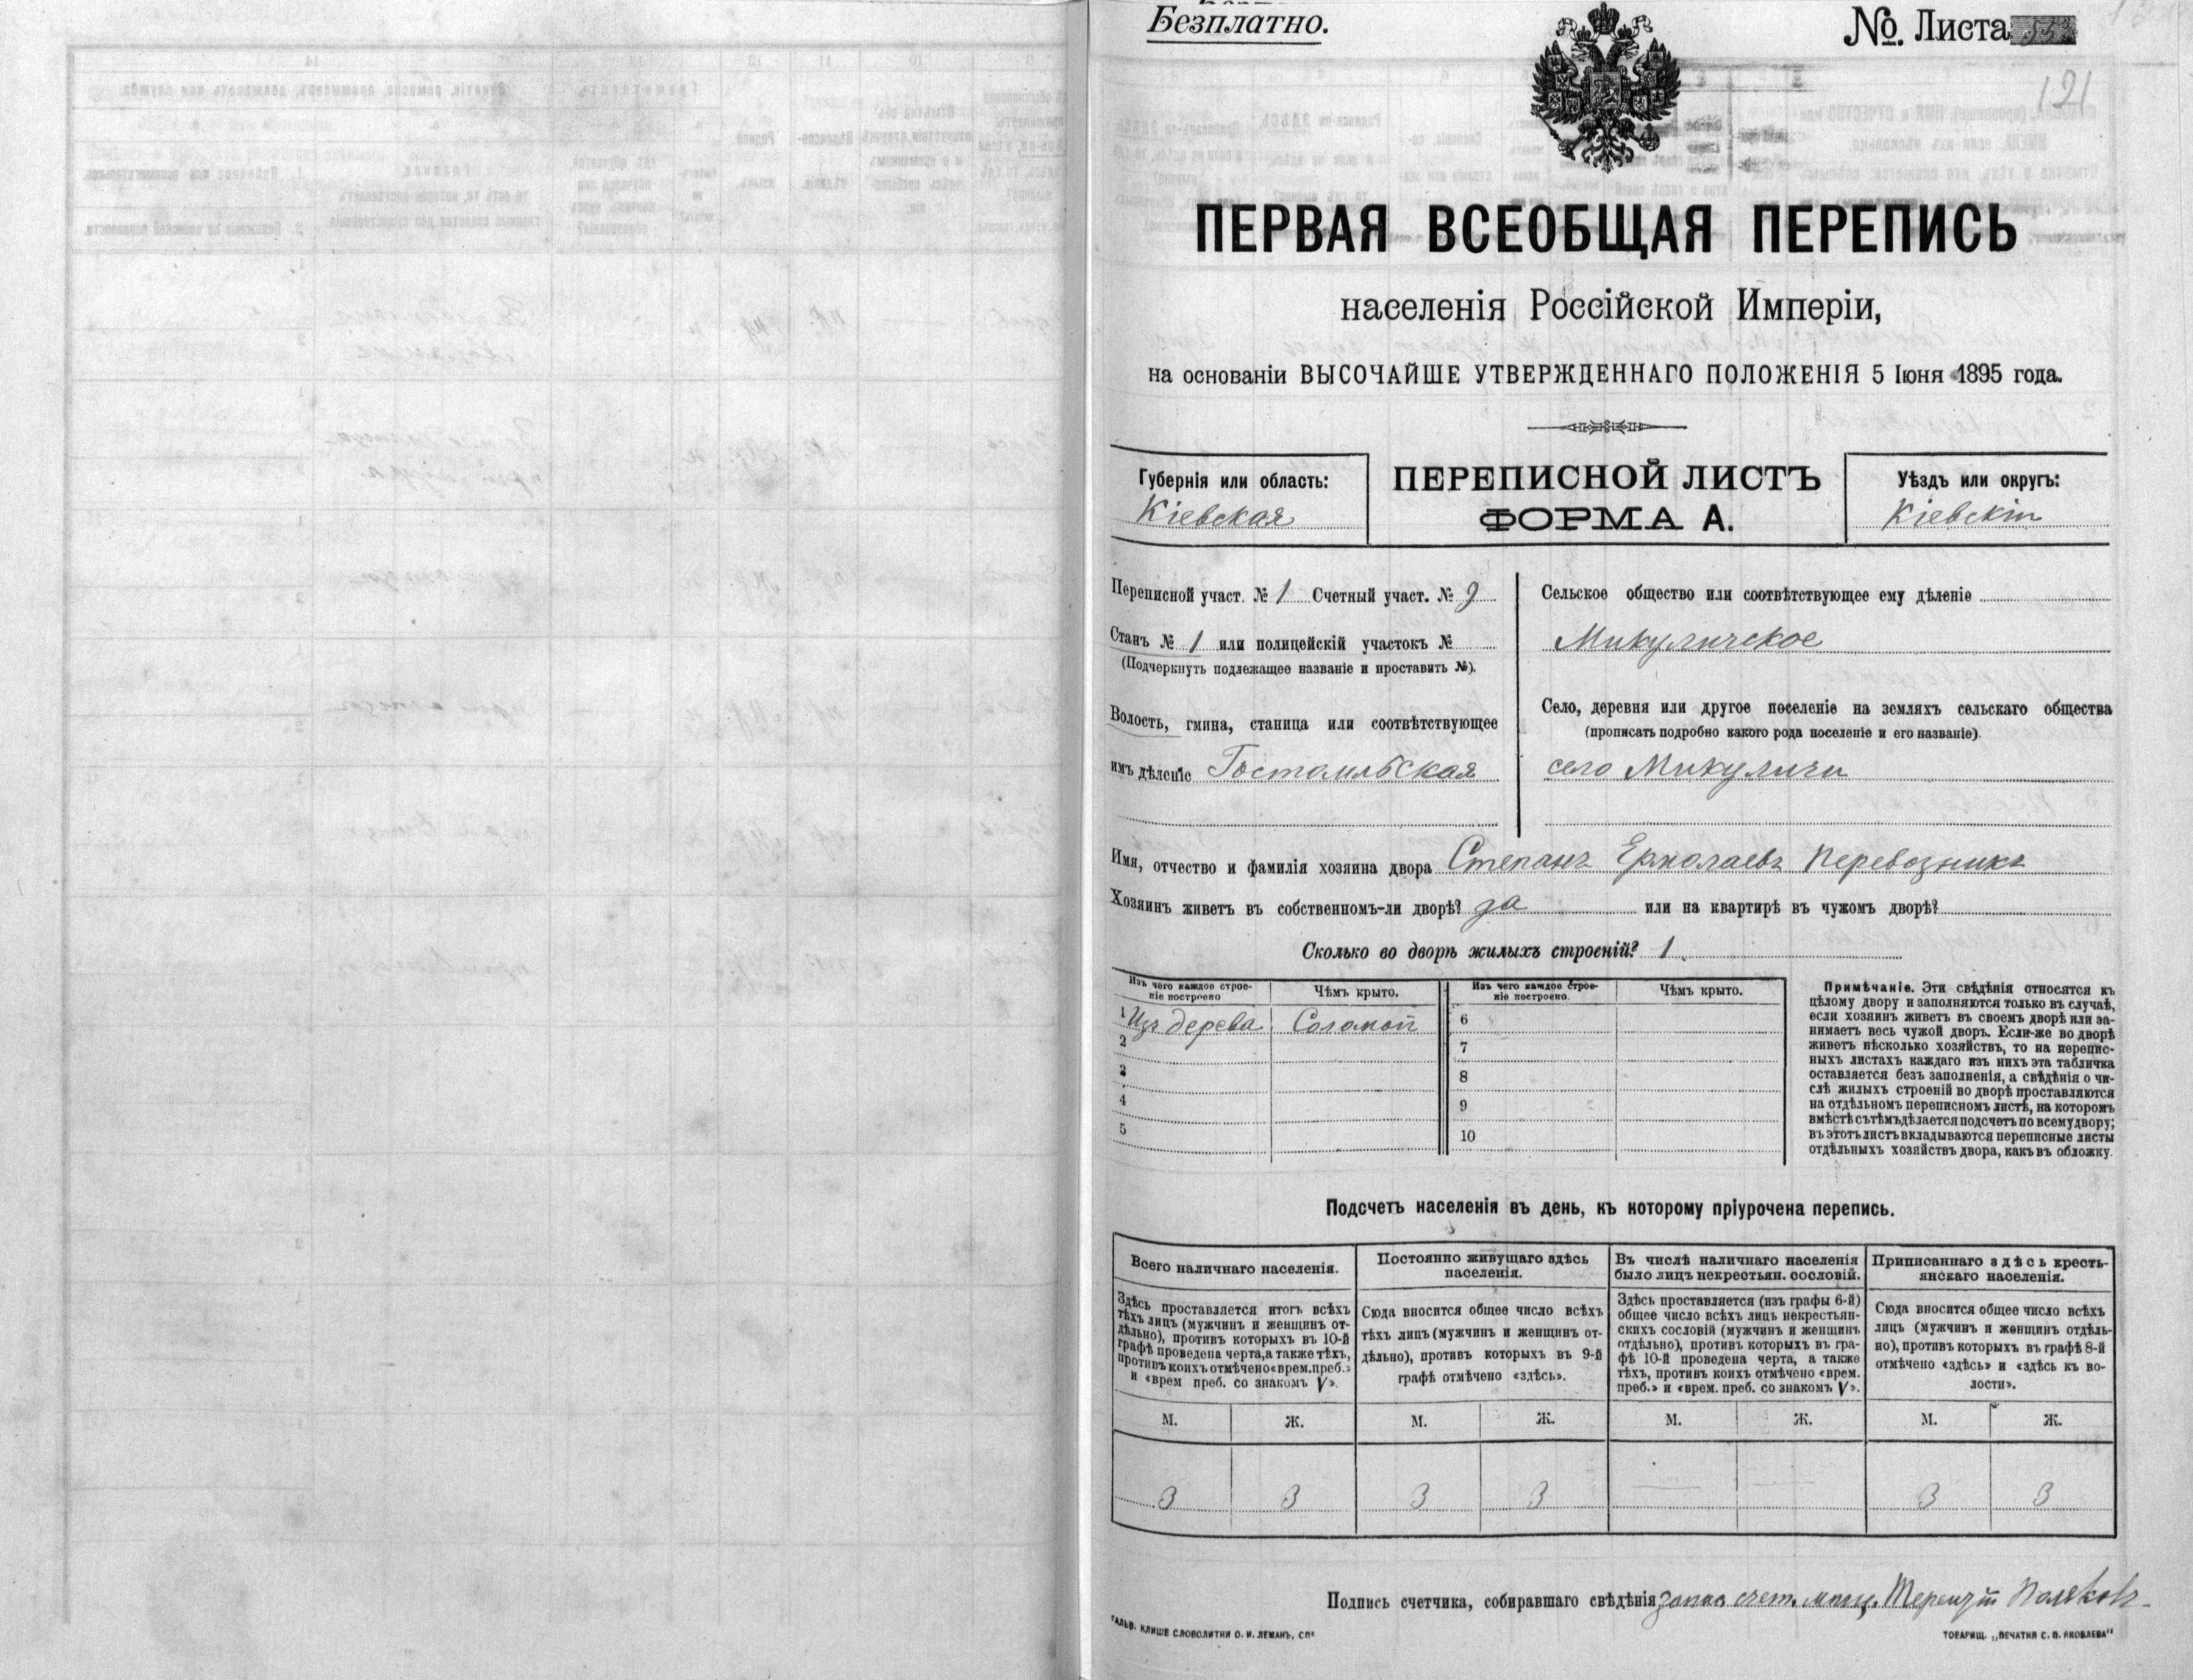 Безплатно.
№. Листа
121
ПЕРВАЯ ВСЕОБЩАЯ ПЕРЕПИСЬ
населенія Россійской Имперіи,
на основаніи ВЫСОЧАЙШЕ УТВЕРЖДЕННАГО ПОЛОЖЕНІЯ 5 Іюня 1895 года.
Губернія или область:
Кіевская
ПЕРЕПИСНОЙ ЛИСТЪ
ФОРМА А.
Уѣздъ или округъ:
Кіевскій
Переписной участ. № 1 Счетный участ. № 9
Станъ № 1 или полицейскій участокъ №
(Подчеркнуть подлежащее названіе и проставить №).
Волость, гмина, станица или соотвѣтствующее
имъ дѣленіе Гостомльская
Сельское общество или соотвѣтствующее ему дѣленіе
Микуличское
Село, деревня или другое поселеніе на земляхъ сельскаго общества
(прописать подробно какого рода поселеніе и его названіе)
село Микуличи
Имя, отчество и фамилія хозяина двора Степанъ Ермолаевъ Перевозникъ
Хозяинъ живетъ въ собственномъ-ли дворѣ? да или на квартирѣ въ чужомъ дворѣ?
Сколько во дворѣ жилыхъ строеній? 1
Изъ чего каждое строеніе построено Чѣмъ крыто. Изъ чего каждое строеніе построено. Чѣмъ крыто.
1 Изъ дерева Соломой 6
2 7
3 8
4 9
5 10
Примѣчаніе. Эти свѣдѣнія относятся къ
цѣлому двору и заполняются только въ случаѣ,
если хозяинъ живетъ въ своемъ дворѣ или за-
нимаетъ весь чужой дворъ. Если-же во дворѣ
живетъ нѣсколько хозяйствъ, то на перепис-
ныхъ листахъ каждаго изъ нихъ эта табличка
оставляется безъ заполненія, а свѣдѣнія о чи-
слѣ жилыхъ строеній во дворѣ проставляются
на отдѣльномъ переписномъ листѣ, на которомъ
вмѣстѣ съ тѣмъ дѣлается подсчетъ по всему двору;
въ этотъ листъ вкладываются переписные листы
отдѣльныхъ хозяйствъ двора, какъ въ обложку.
Подсчетъ населенія въ день, къ которому пріурочена перепись.
Всего наличнаго населенія.
Здѣсь проставляется итогъ всѣхъ
тѣхъ лицъ (мужчинъ и женщинъ от-
дѣльно), противъ которыхъ въ 10-й
графѣ проведена черта, а также тѣхъ,
противъ коихъ отмѣчено «врем. преб.»
и «врем преб. со знакомъ V».
М. Ж.
3 3
Постоянно живущаго здѣсь
населенія.
Сюда вносится общее число всѣхъ
тѣхъ лицъ (мужчинъ и женщинъ от-
дѣльно), противъ которыхъ въ 9-й
графѣ отмѣчено «здѣсь».
М. Ж.
3 3
Въ числѣ наличнаго населенія
было лицъ некрестьян. сословій.
Здѣсь проставляется (изъ графы 6-й)
общее число всѣхъ лицъ некрестьян-
скихъ сословій (мужчинъ и женщинъ
отдѣльно), противъ которыхъ въ гра-
фѣ 10-й проведена черта, а также
тѣхъ, противъ коихъ отмѣчено «врем.
преб.» и «врем. преб. со знакомъ V».
М. Ж.
— —
Приписаннаго здѣсь кресть-
янскаго населенія.
Сюда вносится общее число всѣхъ
лицъ (мужчинъ и женщинъ отдѣль-
но), противъ которыхъ въ графѣ 8-й
отмѣчено «здѣсь» и «здѣсь къ во-
лости».
М. Ж.
3 3
Подпись счетчика, собиравшаго свѣдѣнія Терентій Поляковъ
ГАЛЬВ. КЛИШЕ СЛОВОЛИТНИ О. И. ЛЕМАНЪ, СПб
ТОВАРИЩ. „ПЕЧАТНЯ С. П. ЯКОВЛЕВА"